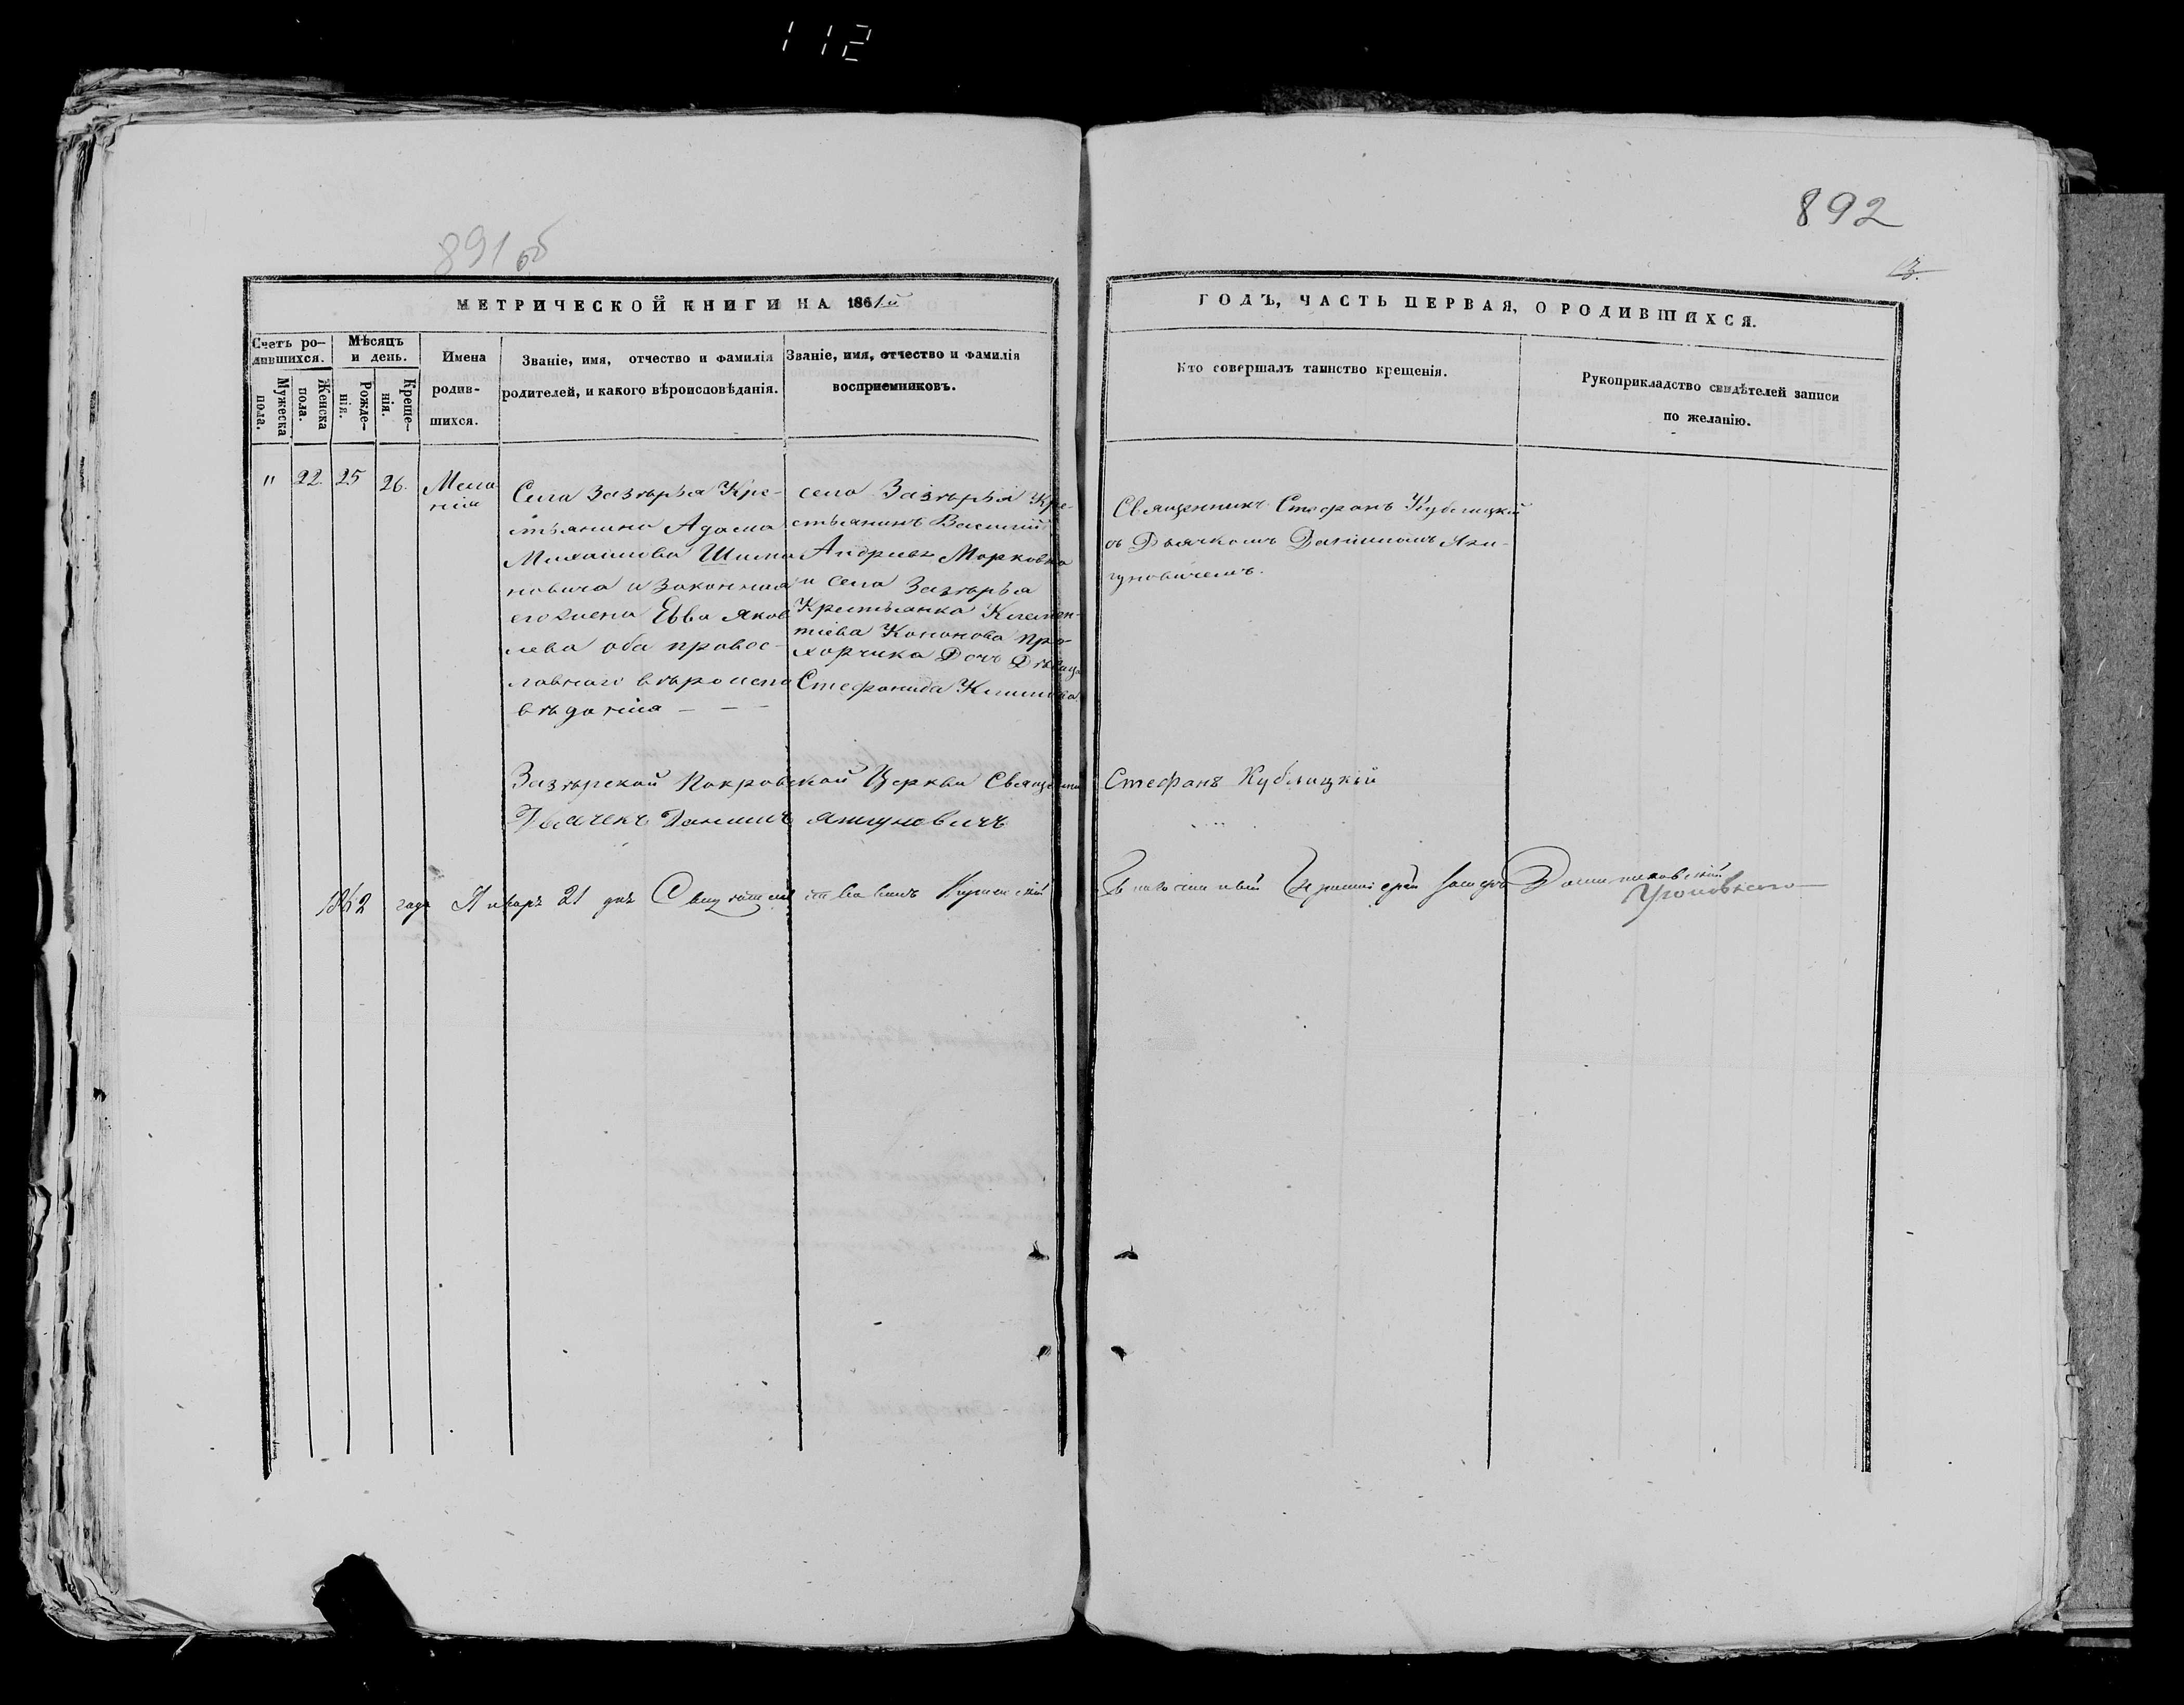 112
891 об
892
МЕТРИЧЕСКОЙ КНИГИ НА 1861й
ГОДЪ, ЧАСТЬ ПЕРВАЯ, О РОДИВШИХСЯ.
Счетъ ро-
дившихся.
Мужеска
пола.
Женска
пола.
Мѣсяцъ
и день.
Рожде-
нія.
Креще-
нія.
Имена
родив-
шихся.
Званіе, имя, отчество и фамилія
родителей, и какого вѣроисповѣданія.
Званіе, имя, отчество и фамилія
восприемниковъ.
Кто совершалъ таинство крещенія.
Рукоприкладство свидѣтелей записи
по желанію.
" 22. 25 26.
Мела
нія
Села Зазѣрья Кре-
стьянина Адама
Михаилова Шима
новича и законная
его жена Евва Яков
лева оба правос-
лавнаго вѣроиспо
вѣданія - - -
села Зазѣрья Кре-
стьянинъ Василій
Андріевъ Марковка
и села Зазѣрья
Крестьянка Клемен-
тіева Кононова Про-
хорчика Дочь Дѣвица
Стефанида Климова
Священникъ Стефанъ Кублицкій
съ Дьячкомъ Даніиломъ Яли-
гуновичемъ.
Зазѣрской Покровской Церкви Священникъ Стефанъ Кублицкій
Дьячекъ Даніилъ
1862 года Январь 21 дня Свидѣтельствовалъ
Благочинный